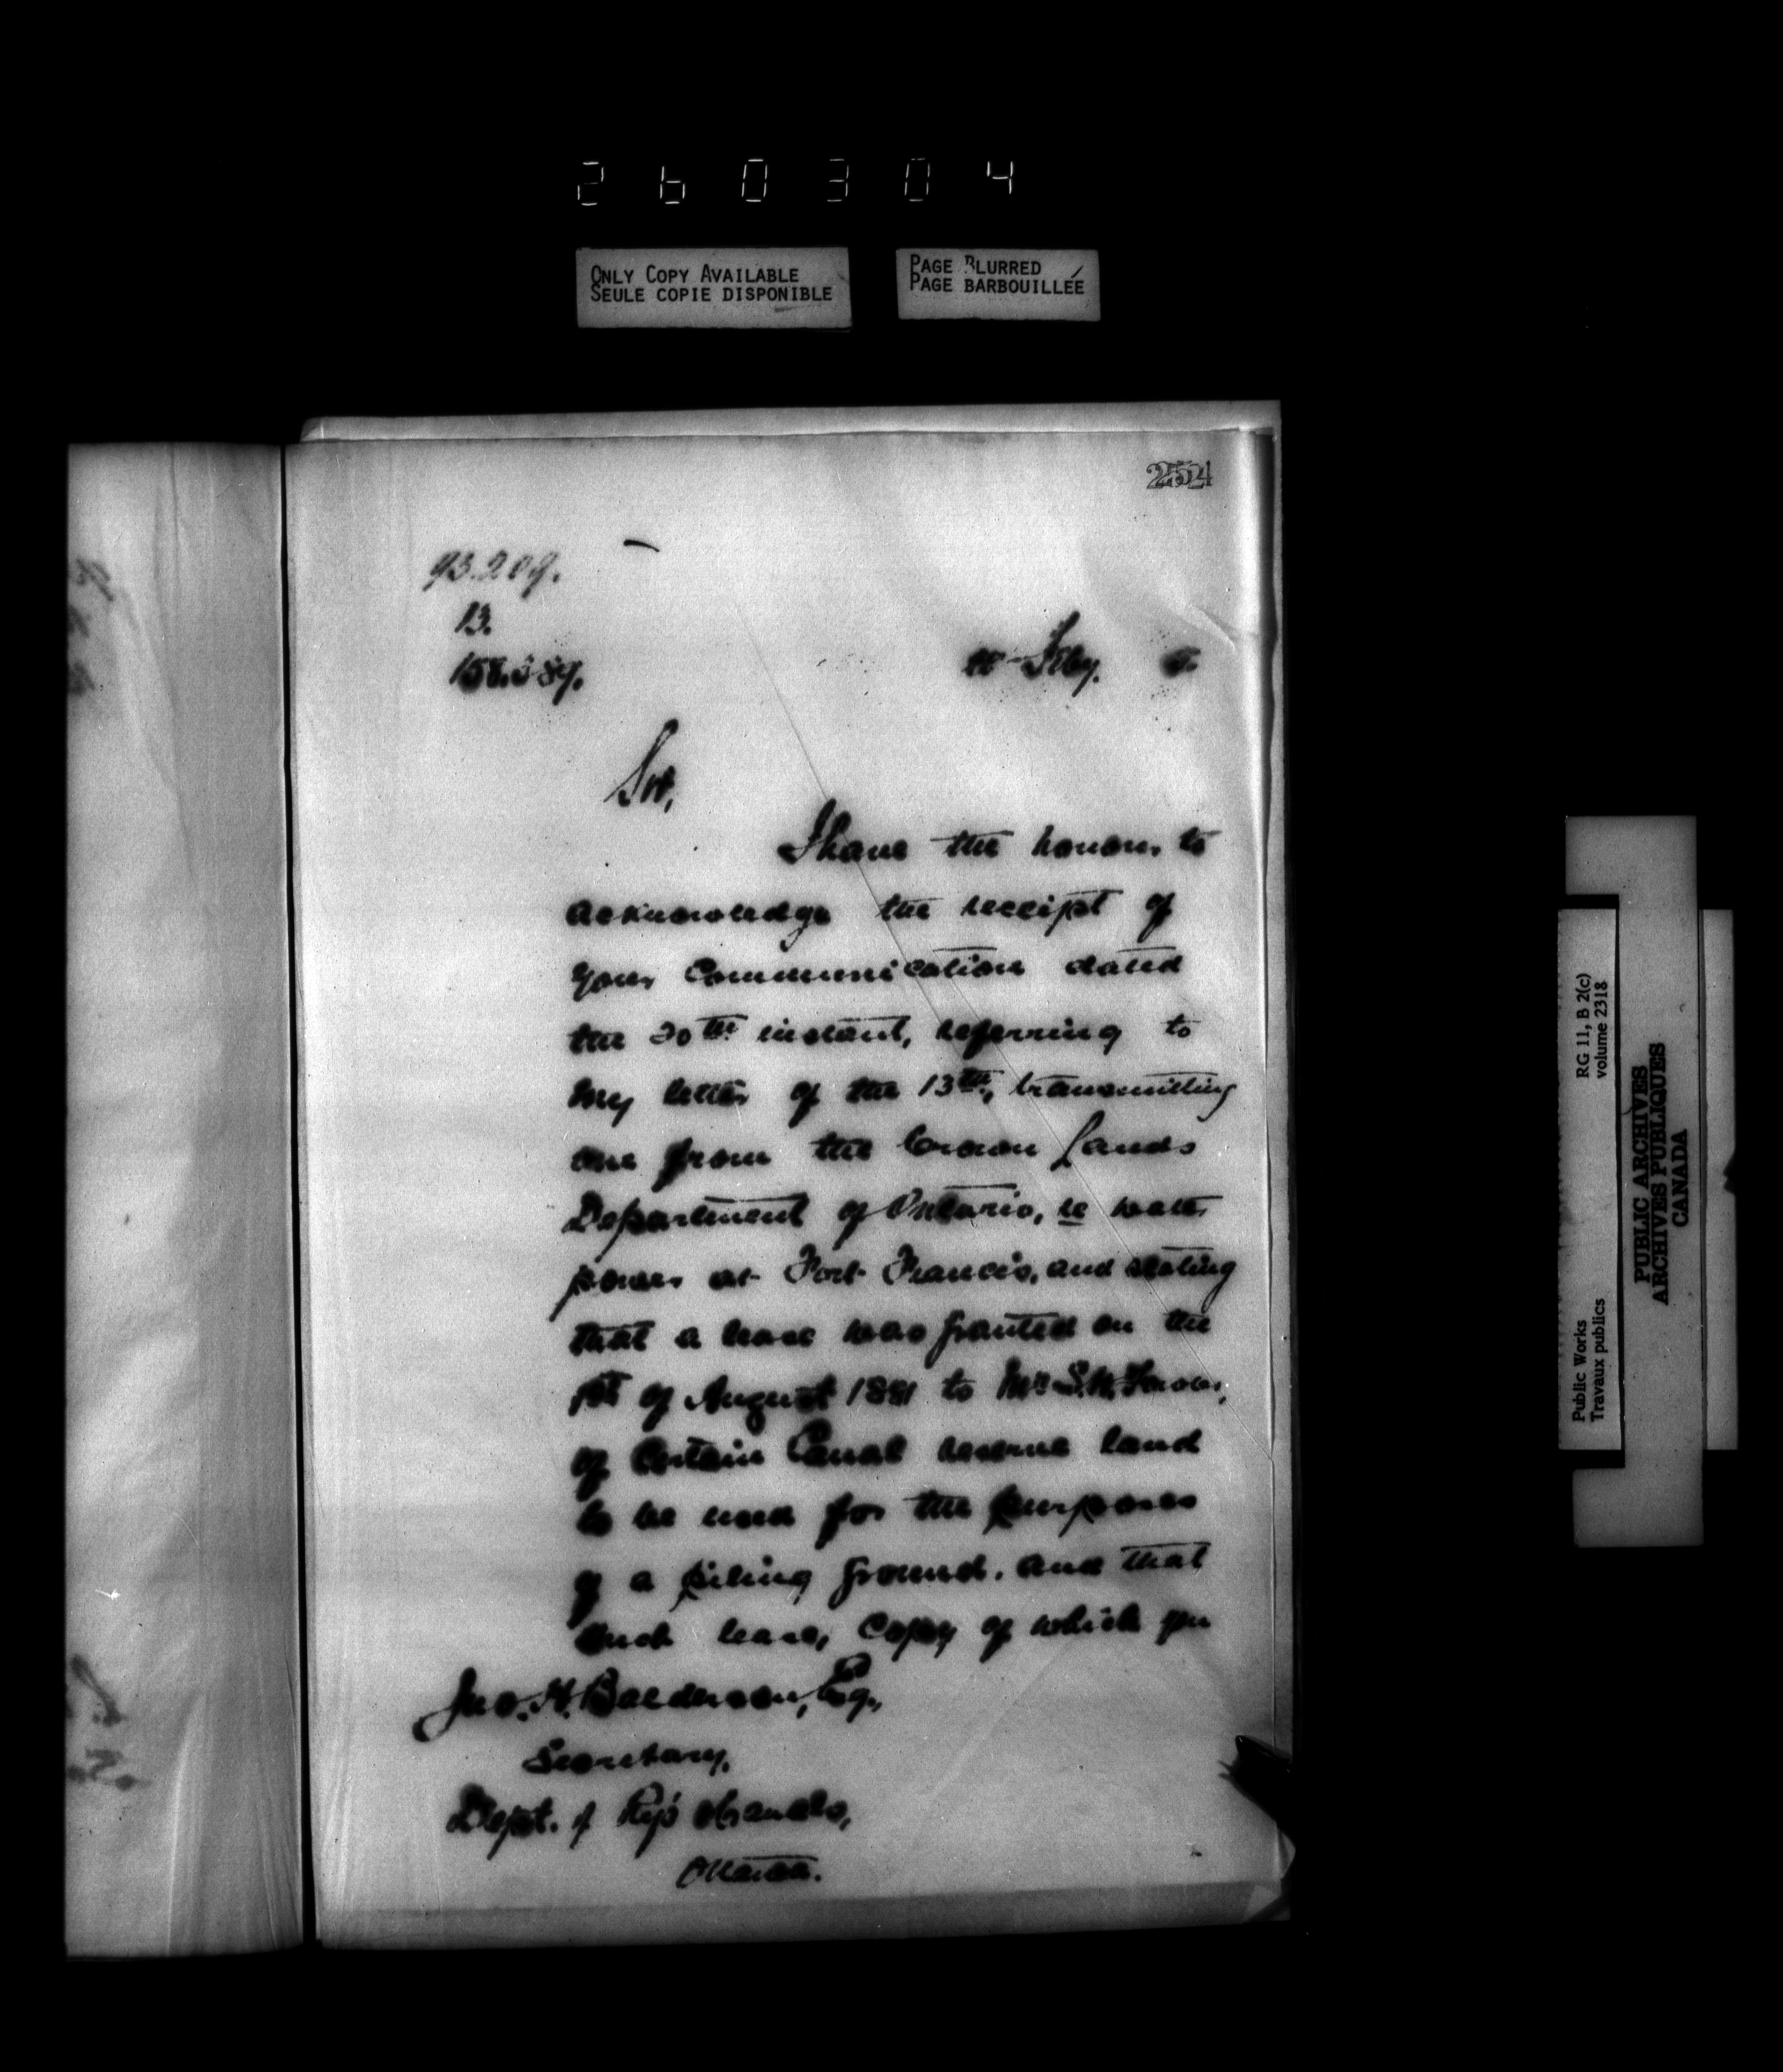 260304
ONLY COPY AVAILABLE
SEULE COPIE DISPONIBLE
PAGE BLURRED
PAGE BARBOUILLÉE
254
93.209.
13.
Feby.
Sir,
I have the honour to
acknowledge the receipt of
your Communication dated
the 20th instant, referring to
my letter of the 13th, transmitting
one from the Crown Lands
Department of Ontario, re water
power at Fort Francis, and stating
that a lease was granted on the
1st of August 1891 to Mr
of Certain Canal reserve land
to be used for the purposes
of a piling ground, and that
such lease, Copy of which you
Jno. H. Balderson, Esq.,
Secretary,
Dept. of Rys & Canals,
Ottawa.
RG 11, B 2(c)
volume 2318
Public Works
Travaux publics
PUBLIC ARCHIVES
ARCHIVES PUBLIQUES
CANADA